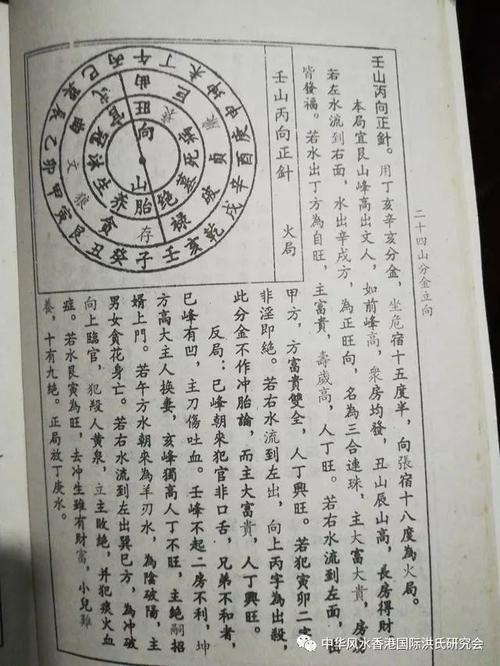 二十四山分金立向
壬山丙向正針。用丁亥辛亥分金,坐危宿十五度半,向張宿十八度為火局。
本局宜艮山峰高出文人,如前峰高,衆房均發,丑山辰山高,長房得財
若左水流到右面,水出辛戌方,為正旺向,名為三合連珠,主大富大貴,
皆發福。若水出丁方為自旺,主富貴,壽歲高,人丁旺。若右水流出左面,出
壬山丙向正針 火局
丙午丁未坤申庚酉辛戌乾亥壬子癸丑艮寅甲卯乙辰巽巳
巨廉貞破祿存貪狼文曲武
旺病死墓絕胎養生沐冠官
向
山
甲方,方富貴雙全,人丁興旺。若犯寅卯二字
非淫即絕。若右水流到左出,向上丙字為出殺,
此分金不作冲胎論,而主大富貴,人丁興旺。
反局:巳峰朝來犯官非口舌,兄弟不和者,
巳峰有凹,主刀傷吐血。壬峰不起二房不利,坤
方高大主人換妻,亥峰獨高人丁不旺,主絕嗣招
婿上門。若午方水朝來為羊刃水,為陰破陽,主
男女貪花身亡。若右水流到左出巽巳方,為冲破
向上臨官,犯殺人黃泉,立主敗絕,并犯痰火血
症。若水艮寅為旺,去冲生雖有財富,小兒難
養,十有九絕。正局放丁庚水。
中华风水香港国际洪氏研究会